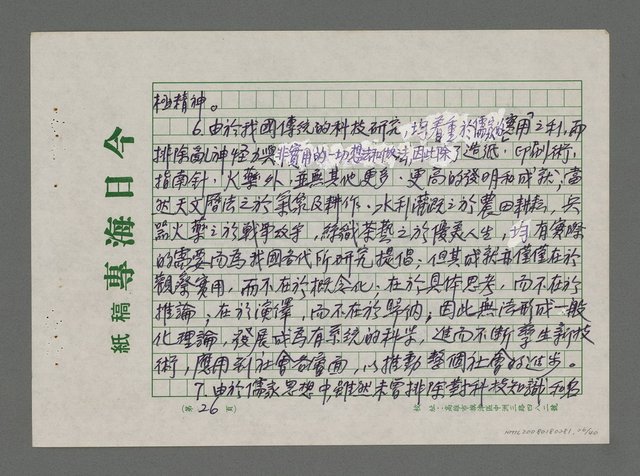 極精神。
6.由於我國傳統的科技研究，均着重於儒家的「應用」之利，而
排除亂神怪力與非實用的一切想法和做法，因此除了造紙、印刷術、
指南針、火藥外，並無其他更多、更高的發明和成就；當
然天文曆法之於氣象及耕作、水利灌溉之於農田耕耘，兵
器火藥之於戰爭攻守，絲織茶藝之於優美人生，均有實際
的需要而為我國各代所研究提倡，但其成就再僅僅在於
觀察實用，而不在於概念化、在於具體思考，而不在於
推論、在於演譯，而不在於歸納；因此無法形成一般
化理論，發展成為有系統的科學，進而不斷孳生新技
術，應用到社會各層面，以推動整個社會的進步。
7.由於儒家思想中雖然未嘗排除對科技知識和名
今日海專
稿紙
(第26頁)
校址：高雄市旗津區中洲三路四八二號
NMTL20080180281, 26/40